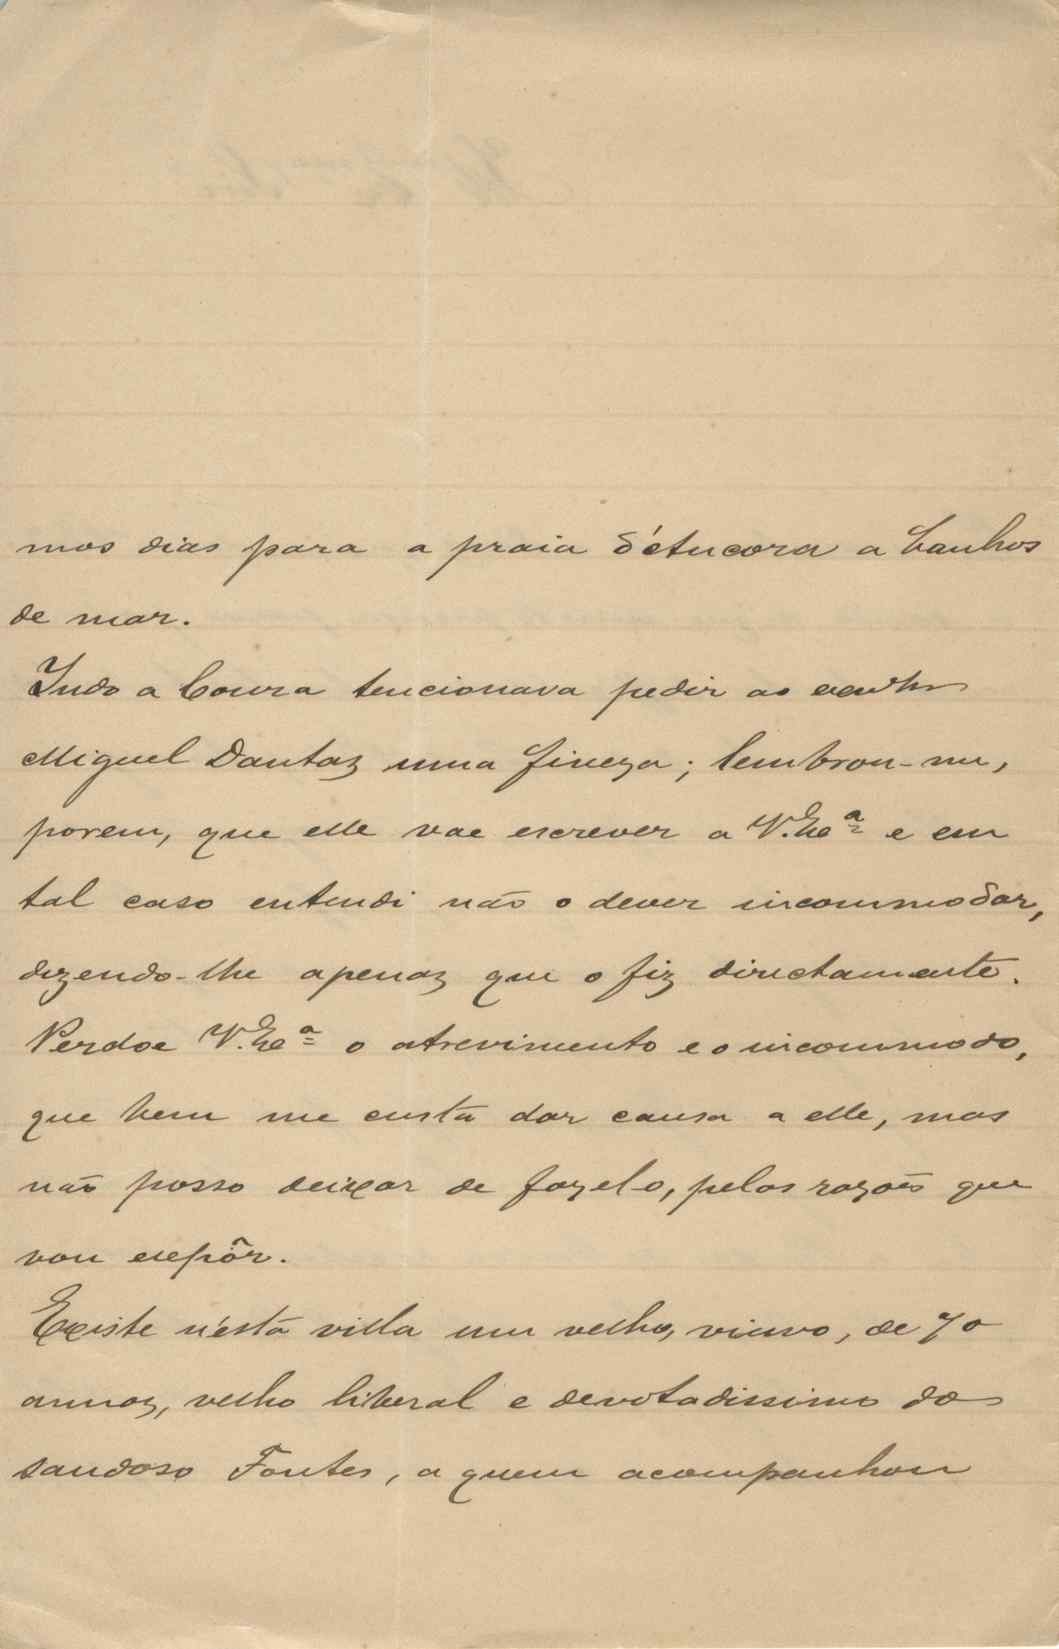 mos dias para a praia d'Ancora a banhos
de mar.
Indo a Coura tencionava pedir ao
Miguel Dantas uma fineza; lembrou-me,
porem, que elle vae escrever a V. Exª e em
tal caso entendi não o dever incommodar,
dizendo-lhe apenas que o fiz directamente.
Perdoe V. Exª o atrevimento e o incommodo,
que bem me custa dar causa a elle, mas
não posso deixar de fazel-o, pelas razões que
vou expôr.
Existe n'esta villa um velho, viuvo, de 70
annos, velho liberal e devotadissimo do
saudoso Fontes, a quem acompanhou